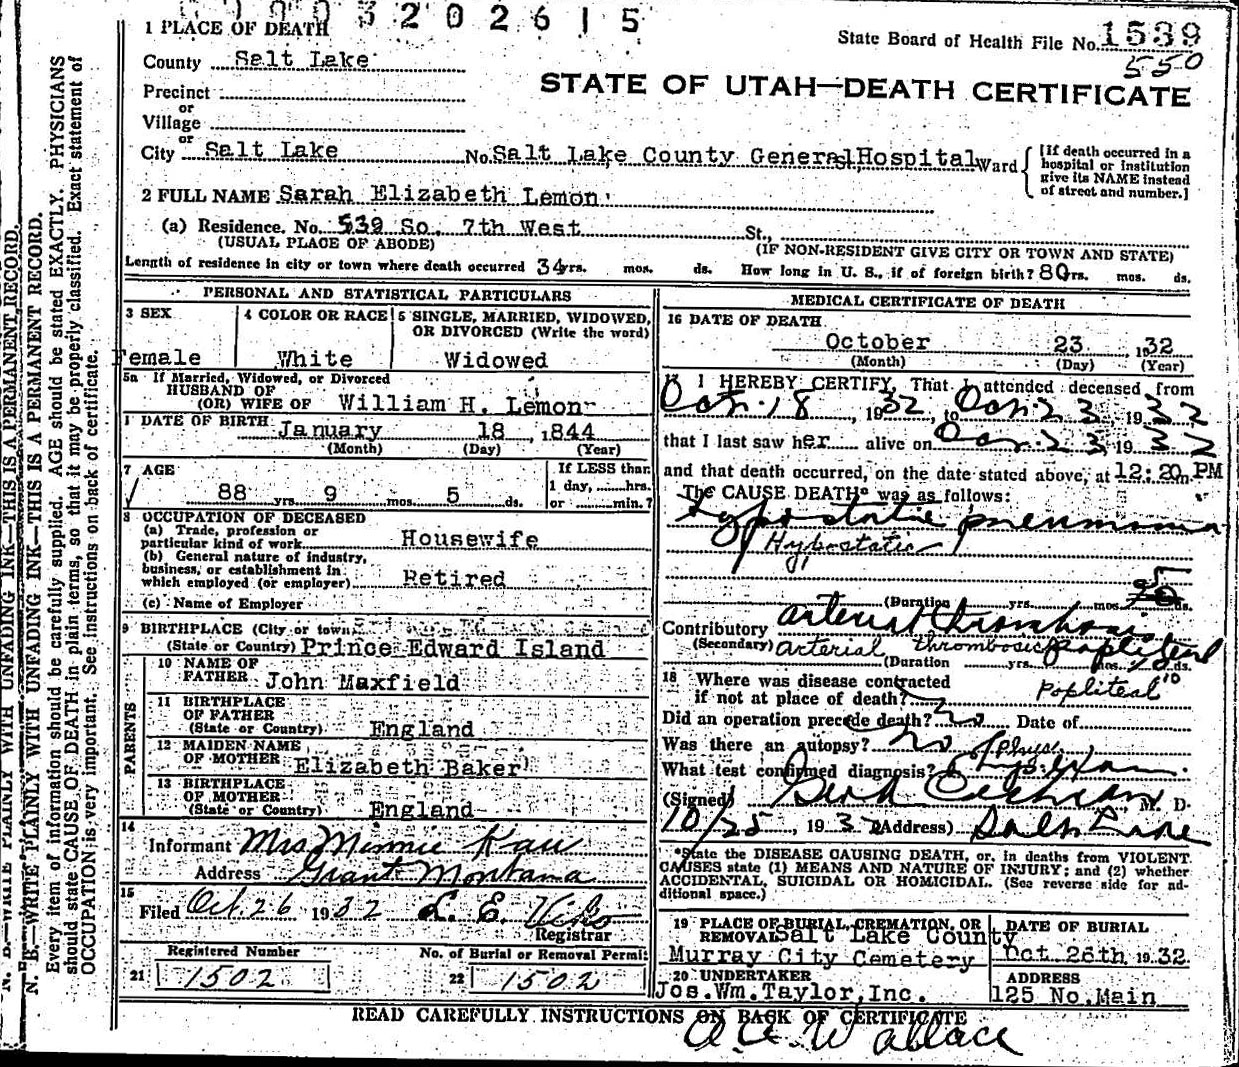 3 2 0 2 6 1 5
1 PLACE OF DEATH
State Board of Health File No. 1539
550
County Salt Lake
STATE OF UTAH—DEATH CERTIFICATE
Precinct
or
Village
or
City Salt Lake No. Salt Lake County General Hospital Ward
[If death occurred in a hospital or institution give its NAME instead of street and number.]
2 FULL NAME Sarah Elizabeth Lemon
(a) Residence. No. 539 So. 7th West St.,
(USUAL PLACE OF ABODE) (IF NON-RESIDENT GIVE CITY OR TOWN AND STATE)
Length of residence in city or town where death occurred 34 yrs. mos. ds. How long in U. S., if of foreign birth? 80 yrs. mos. ds.
PERSONAL AND STATISTICAL PARTICULARS
3 SEX 4 COLOR OR RACE 5 SINGLE, MARRIED, WIDOWED, OR DIVORCED (Write the word)
Female White Widowed
5a If Married, Widowed, or Divorced
HUSBAND OF
(OR) WIFE OF William H. Lemon
DATE OF BIRTH January 18, 1844
(Month) (Day) (Year)
7 AGE If LESS than
1 day, hrs.
88 yrs. 9 mos. 5 ds. or min.?
8 OCCUPATION OF DECEASED
(a) Trade, profession or
particular kind of work Housewife
(b) General nature of industry,
business, or establishment in
which employed (or employer) Retired
(c) Name of Employer
9 BIRTHPLACE (City or town)
(State or Country) Prince Edward Island
PARENTS
10 NAME OF
FATHER John Maxfield
11 BIRTHPLACE
OF FATHER
(State or Country) England
12 MAIDEN NAME
OF MOTHER Elizabeth Baker
13 BIRTHPLACE
OF MOTHER
(State or Country) England
14
Informant Mrs Minnie
Address Grant Montana
15
Filed Oct. 26 1932 L. E.
Registrar
Registered Number No. of Burial or Removal Permit
21 1502 22 1502
MEDICAL CERTIFICATE OF DEATH
16 DATE OF DEATH
October 23, 1932
(Month) (Day) (Year)
17 I HEREBY CERTIFY, That I attended deceased from
Oct. 18, 1932, to Oct 23, 1932
that I last saw her alive on Oct 23, 1932
and that death occurred, on the date stated above, at 12:20 PM m.
The CAUSE DEATH* was as follows:
Hypostatic pneumonia
Hypostatic
5
(Duration yrs. mos. ds.
Contributory arterial thrombosis
(Secondary) arterial thrombosis popliteal
(Duration yrs. mos. ds.
18 Where was disease contracted
if not at place of death? Popliteal 10
Did an operation precede death? no Date of
Was there an autopsy? no (Phys.
What test confirmed diagnosis? Phys. Exam.
(Signed) Cochran M. D.
10/25, 1932 (Address) Salt Lake
*State the DISEASE CAUSING DEATH, or, in deaths from VIOLENT
CAUSES state (1) MEANS AND NATURE OF INJURY; and (2) whether
ACCIDENTAL, SUICIDAL OR HOMICIDAL. (See reverse side for ad-
ditional space.)
19 PLACE OF BURIAL, CREMATION, OR
REMOVAL Salt Lake County
Murray City Cemetery
DATE OF BURIAL
Oct 26th 1932
20 UNDERTAKER
Jos. Wm. Taylor, Inc.
ADDRESS
125 No. Main
READ CAREFULLY INSTRUCTIONS ON BACK OF CERTIFICATE
Wallace
N. B.—WRITE PLAINLY WITH UNFADING INK—THIS IS A PERMANENT RECORD.
N. B.—WRITE PLAINLY WITH UNFADING INK—THIS IS A PERMANENT RECORD.
Every item of information should be carefully supplied. AGE should be stated EXACTLY. PHYSICIANS
should state CAUSE OF DEATH in plain terms, so that it may be properly classified. Exact statement of
OCCUPATION is very important. See instructions on back of certificate.